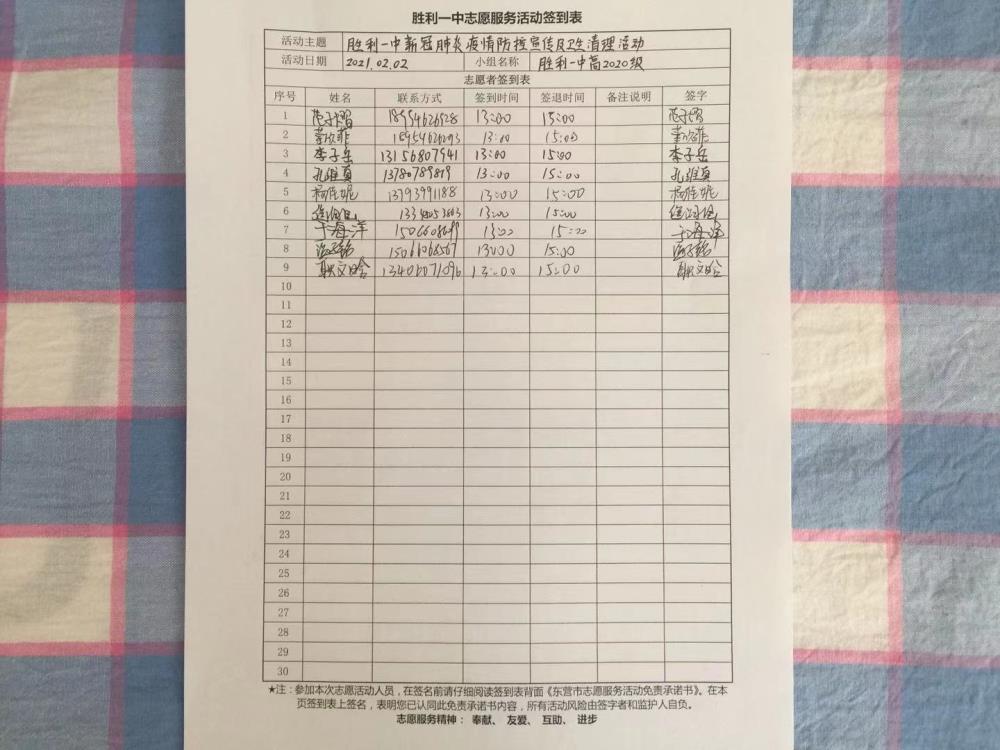 胜利一中志愿服务活动签到表
活动主题 胜利一中新冠肺炎疫情防控宣传及卫生清理活动
活动日期 2021.02.02 小组名称 胜利一中高2020级
志愿者签到表
序号 姓名 联系方式 签到时间 签退时间 备注说明 签字
1 18954626928 13:00 15:00
2 13:00 15:00
3 李子岳 13156807941 13:00 15:00 李子岳
4 孔维真 13780789819 13:00 15:00 孔维真
5 杨佳妮 13793991188 13:00 15:00 杨佳妮
6 13:00 15:00
7 于海洋 13:00 15:00 于海洋
8 15066068567 13:00 15:00
9 13406071096 13:00 15:00
10
11
12
13
14
15
16
17
18
19
20
21
22
23
24
25
26
27
28
29
30
★注：参加本次志愿活动人员，在签名前请仔细阅读签到表背面《东营市志愿服务活动免责承诺书》。在本
页签到表上签名，表明您已认同此免责承诺书内容，所有活动风险由签字者和监护人自负。
志愿服务精神： 奉献、 友爱、 互助、 进步